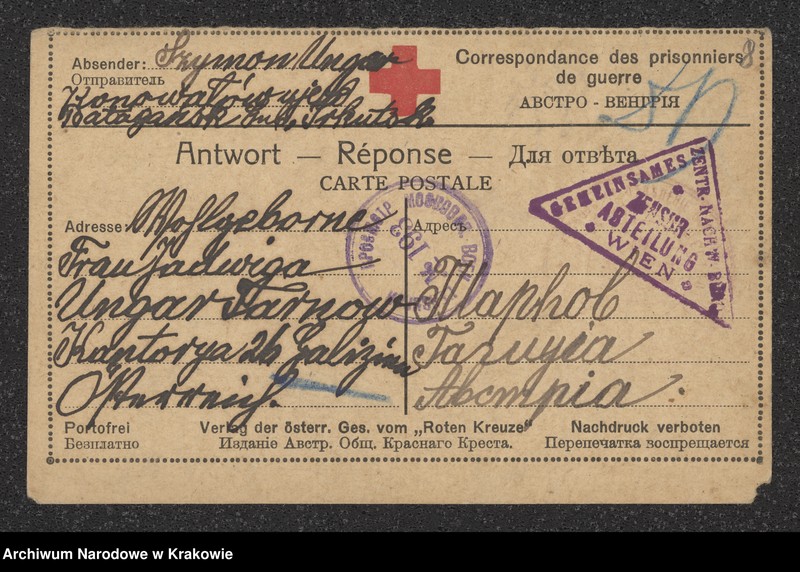 Absender: Szymon Ungar
Отправитель
Correspondance des prisonniers
de guerre
АВСТРО - ВЕНГРІЯ
8
Antwort — Réponse — Для отвѣта
CARTE POSTALE
Adresse: Wohlgeborne
Адресъ
Frau Jadwiga
Ungar Tarnow
Kantorya 26 Galizien
Österreich.
Тарновъ
Галиція
Австрія.
GEMEINSAMES ZENTR.-NACHW. BUREAU
ZENSUR-
ABTEILUNG
WIEN
193
Portofrei
Безплатно
Verlag der österr. Ges. vom „Roten Kreuze"
Изданіе Австр. Общ. Краснаго Креста.
Nachdruck verboten
Перепечатка зоспрещается
Archiwum Narodowe w Krakowie